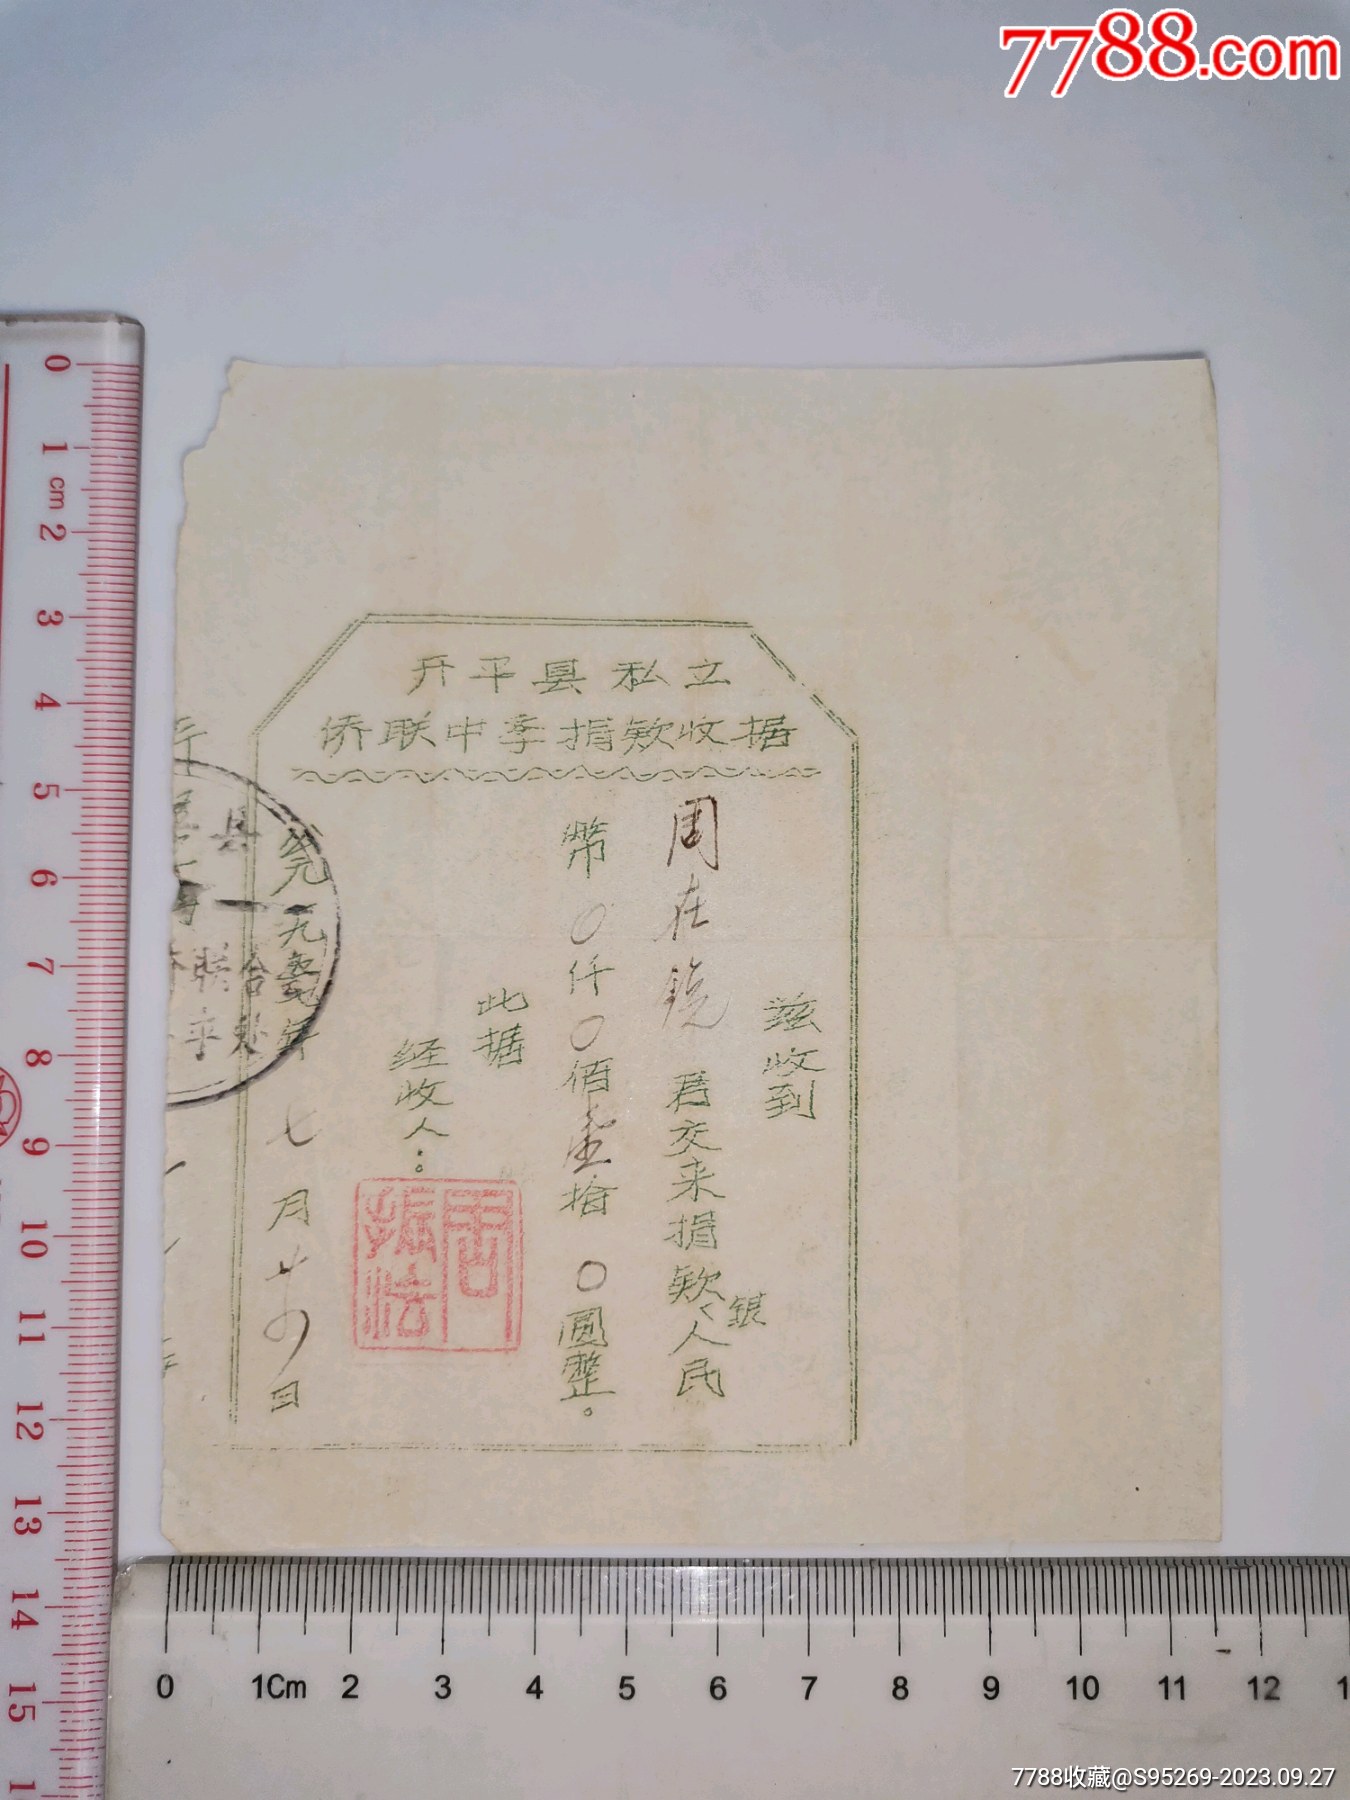 7788.com
开平县私立
侨联中学捐款收据
兹收到
周在锐 君交来捐款〻人民
银
币0仟0佰壹拾0圆整。
此据
经收人：
周振法
公元一九 年七月廿四日
县
联合
0 1 cm 2 3 4 5 6 7 8 9 10 11 12 13 14 15
0 1Cm 2 3 4 5 6 7 8 9 10 11 12
7788收藏@S95269-2023.09.27